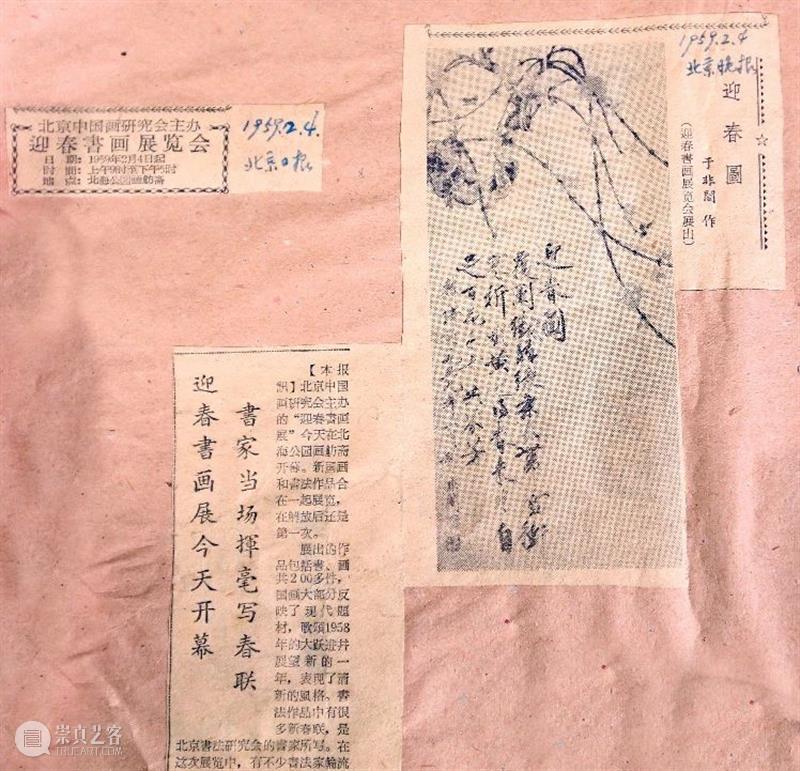 北京中国画研究会主办
迎春書画展览会
日期：1959年2月4日起
时間：上午9时至下午5时
地点：北海公园画舫斋
1959.2.4.
北京日报
1959.2.4
北京晚报
迎春圖
于非闇 作
（迎春書画展览会展出）
迎春圖
書家当场揮毫写春联
迎春書画展今天开幕
【本报
訊】北京中国
画研究会主办
的“迎春書画
展”今天在北
海公园画舫斋
开幕。新国画
和書法作品合
在一起展览，
在解放后还是
第一次。
展出的作
品包括書、画
共200多件，
国画大部分反
映了现代题
材，歌頌1958
年的大跃进并
展望新的一
年，表现了清
新的風格。書
法作品中有很
多新春联，是
北京書法研究会的書家所写。在
这次展览中，有不少書法家輪流
崇真艺客
TRUEART.COM